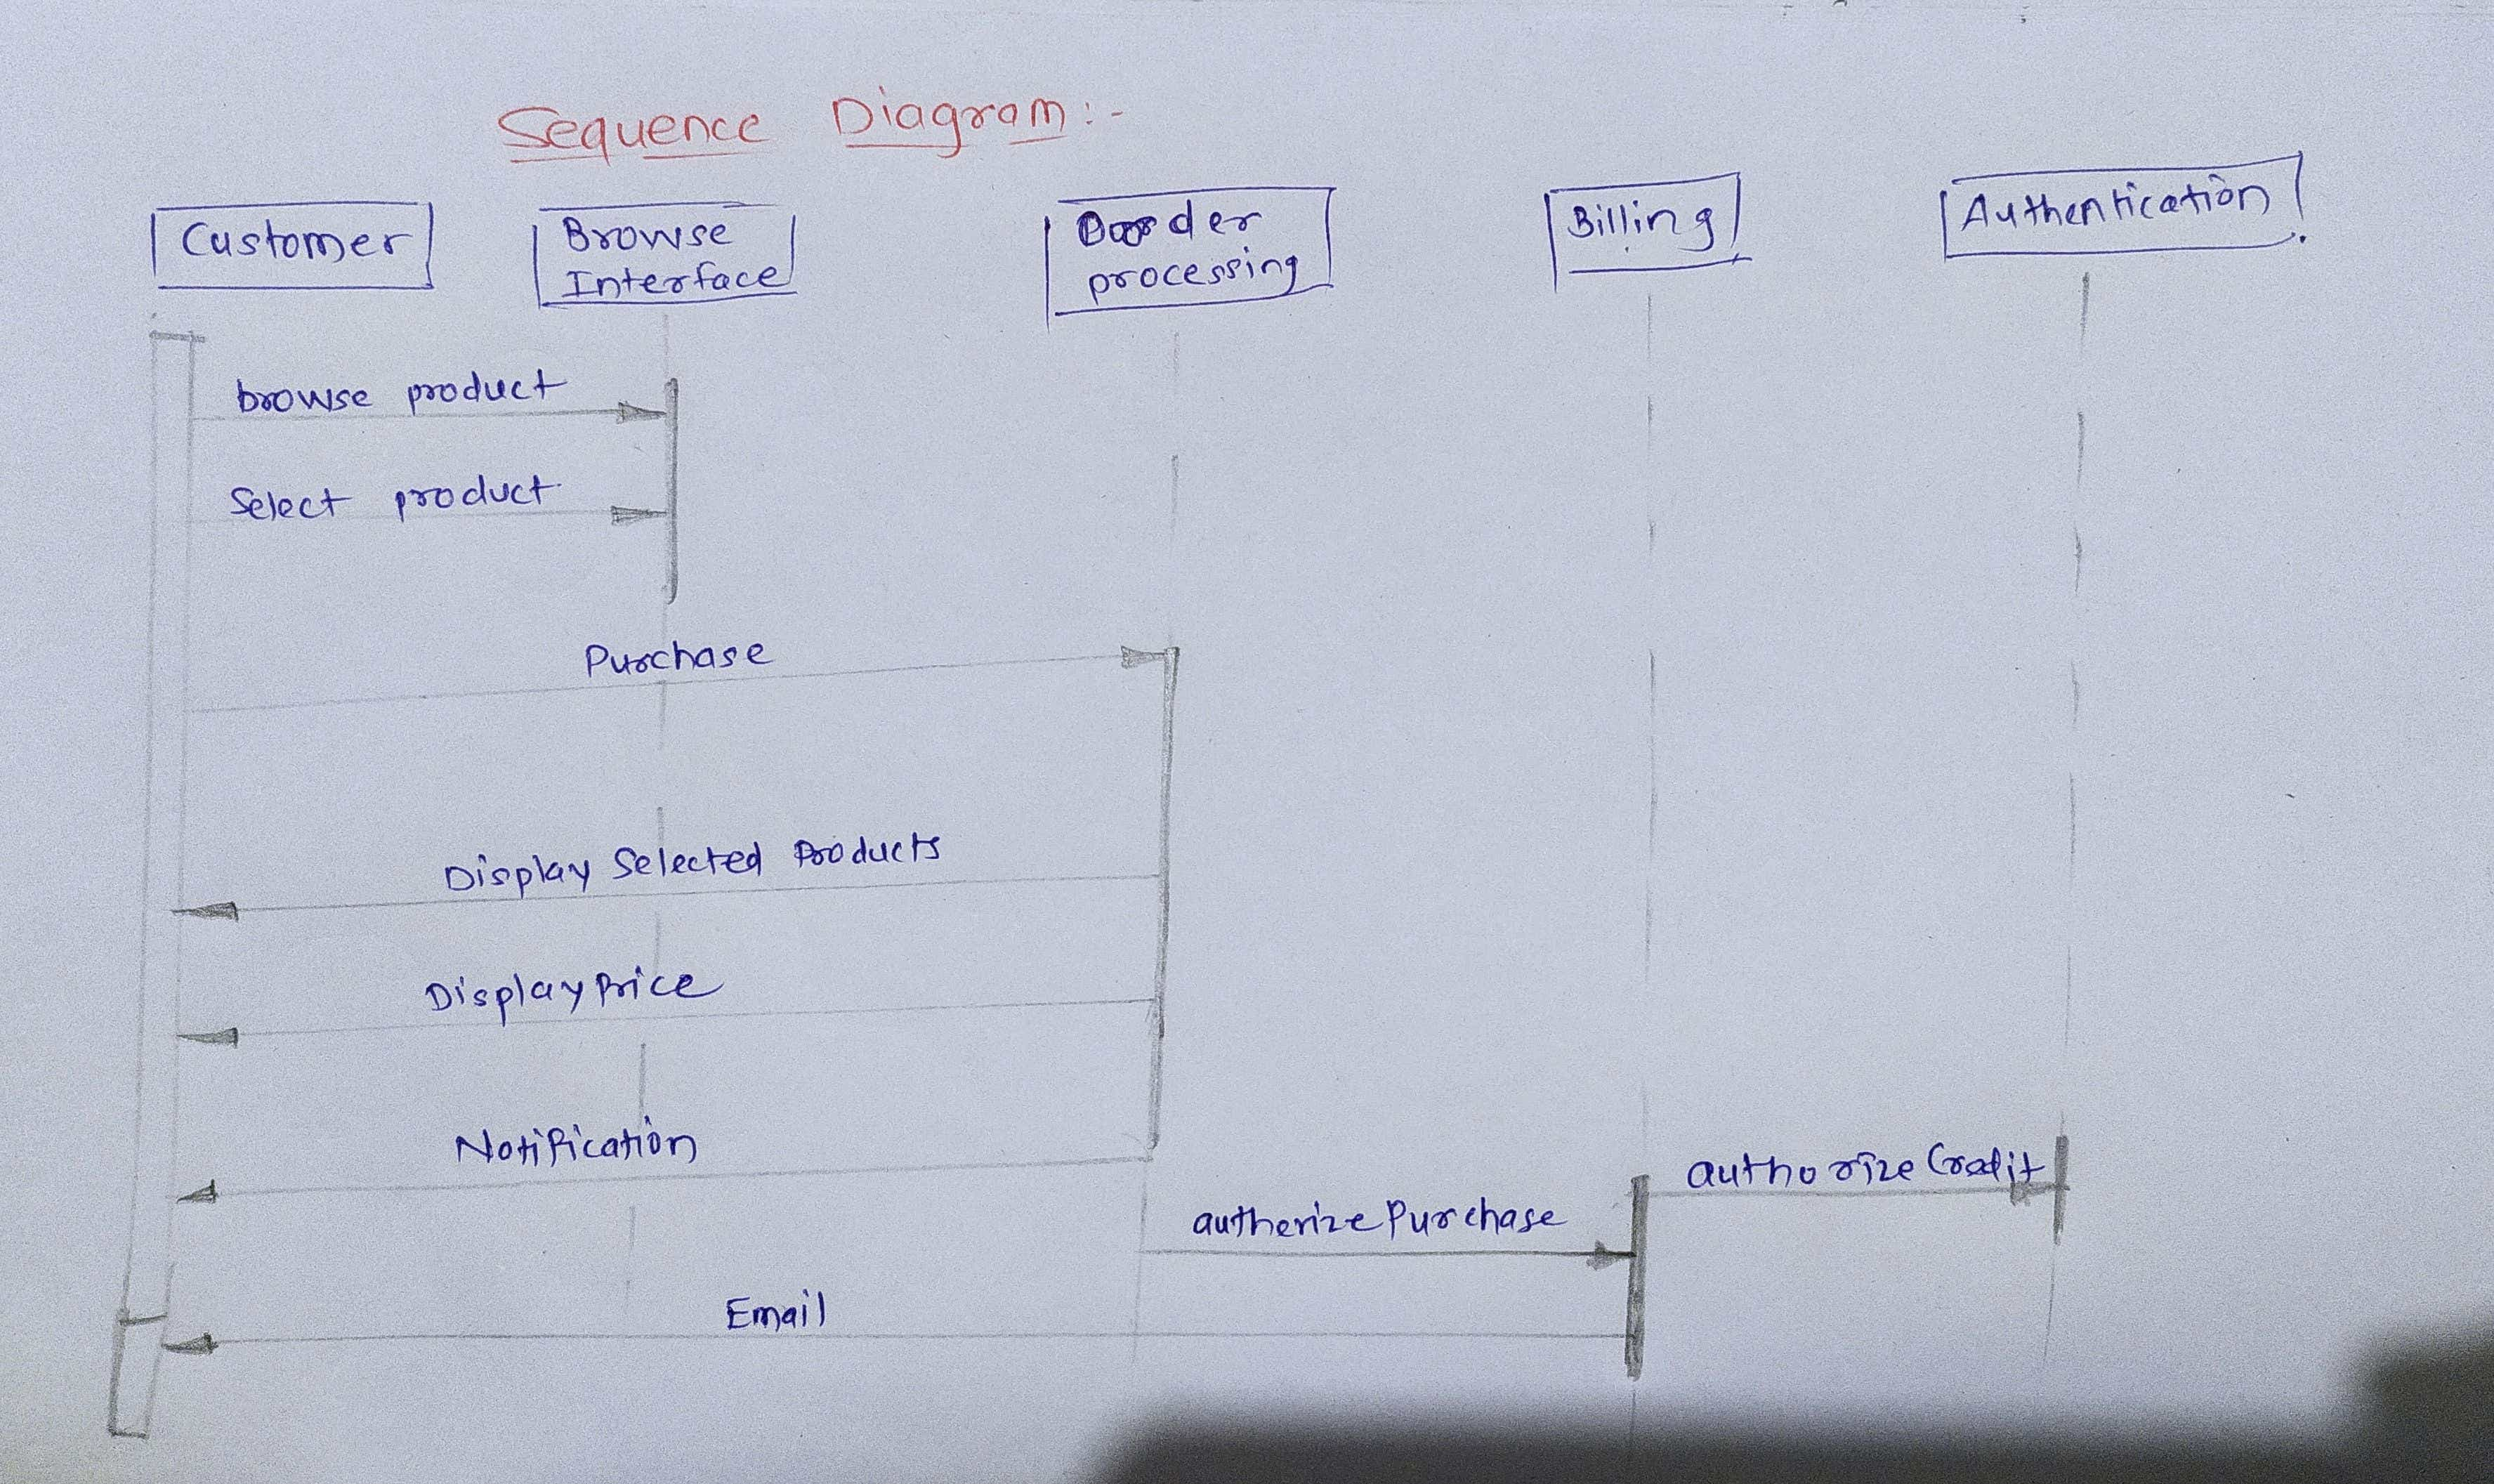 Sequence Diagram:-
Customer
Browse
Interface
Order
processing
Billing
Authentication
browse product
Select product
Purchase
Display Selected Products
Display Price
Notification
authorize Credit
autherize Purchase
Email